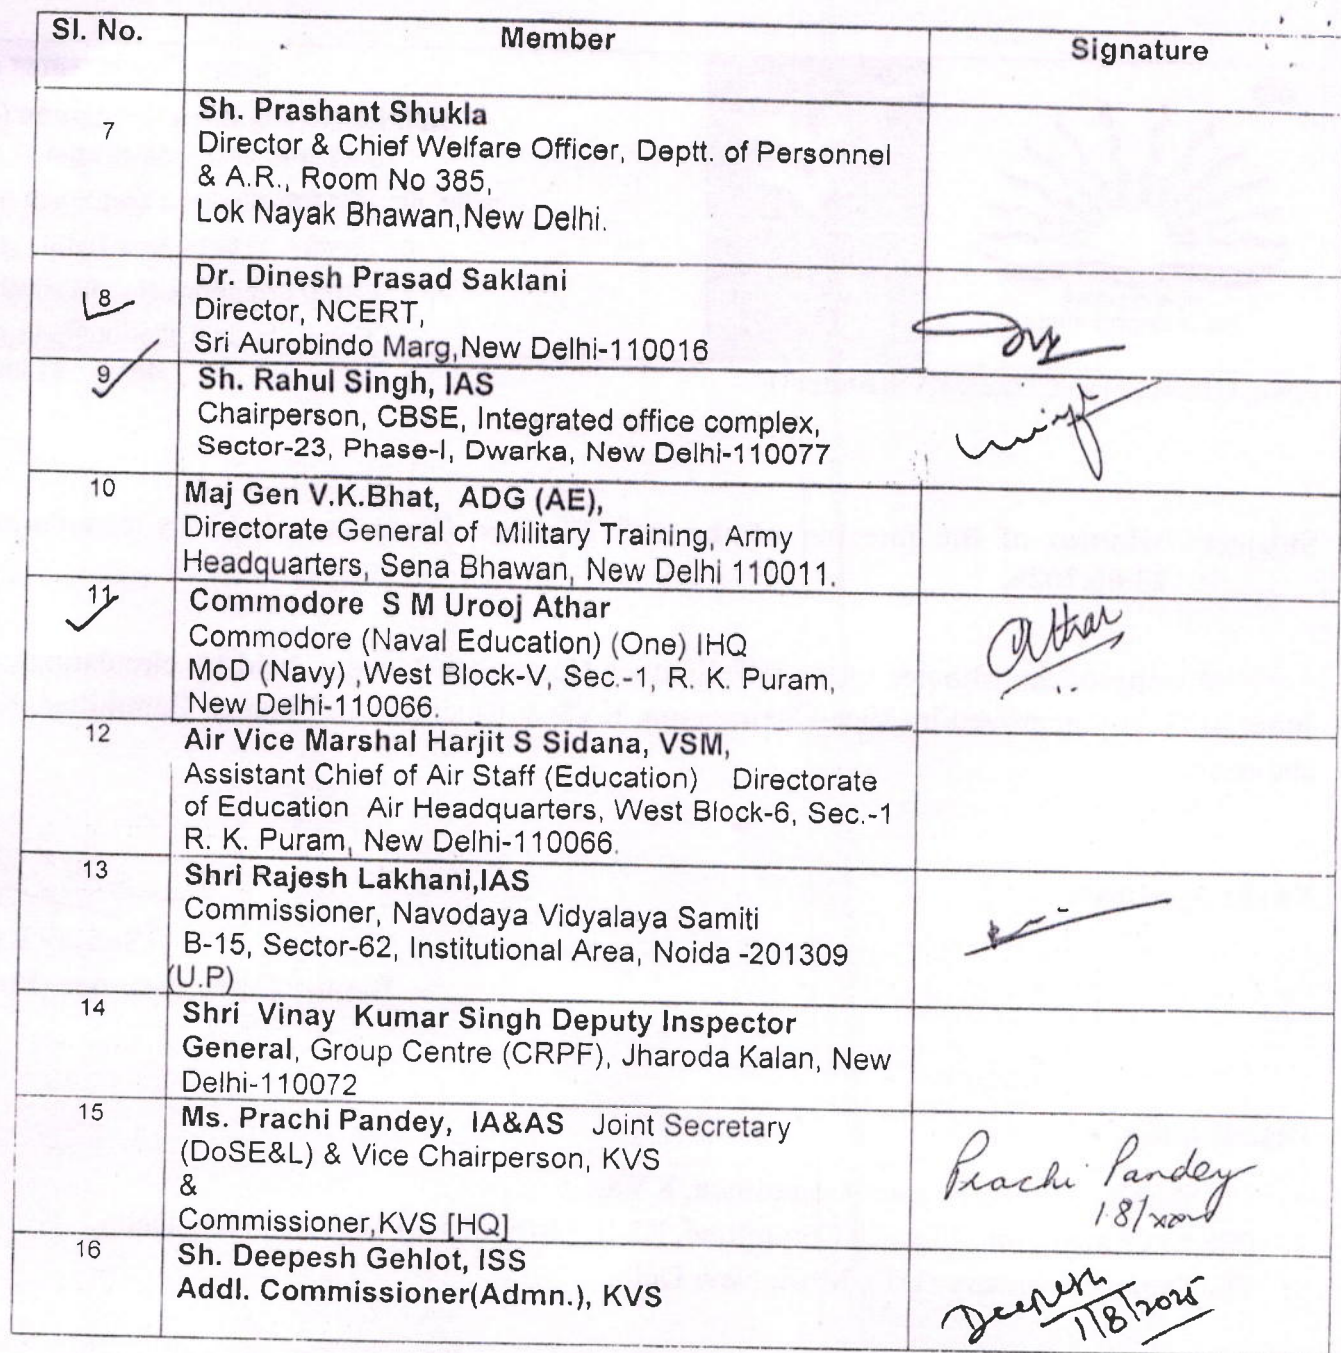 Sl. No. Member Signature
7 Sh. Prashant Shukla
Director & Chief Welfare Officer, Deptt. of Personnel
& A.R., Room No 385,
Lok Nayak Bhawan,New Delhi.
8 Dr. Dinesh Prasad Saklani
Director, NCERT,
Sri Aurobindo Marg,New Delhi-110016
9 Sh. Rahul Singh, IAS
Chairperson, CBSE, Integrated office complex,
Sector-23, Phase-I, Dwarka, New Delhi-110077
10 Maj Gen V.K.Bhat, ADG (AE),
Directorate General of Military Training, Army
Headquarters, Sena Bhawan, New Delhi 110011.
11 Commodore S M Urooj Athar
Commodore (Naval Education) (One) IHQ
MoD (Navy) ,West Block-V, Sec.-1, R. K. Puram,
New Delhi-110066.
Athar
12 Air Vice Marshal Harjit S Sidana, VSM,
Assistant Chief of Air Staff (Education) Directorate
of Education Air Headquarters, West Block-6, Sec.-1
R. K. Puram, New Delhi-110066.
13 Shri Rajesh Lakhani,IAS
Commissioner, Navodaya Vidyalaya Samiti
B-15, Sector-62, Institutional Area, Noida -201309
(U.P)
14 Shri Vinay Kumar Singh Deputy Inspector
General, Group Centre (CRPF), Jharoda Kalan, New
Delhi-110072
15 Ms. Prachi Pandey, IA&AS Joint Secretary
(DoSE&L) & Vice Chairperson, KVS
&
Commissioner,KVS [HQ]
Prachi Pandey
16 Sh. Deepesh Gehlot, ISS
Addl. Commissioner(Admn.), KVS
Deepesh
1/8/2025